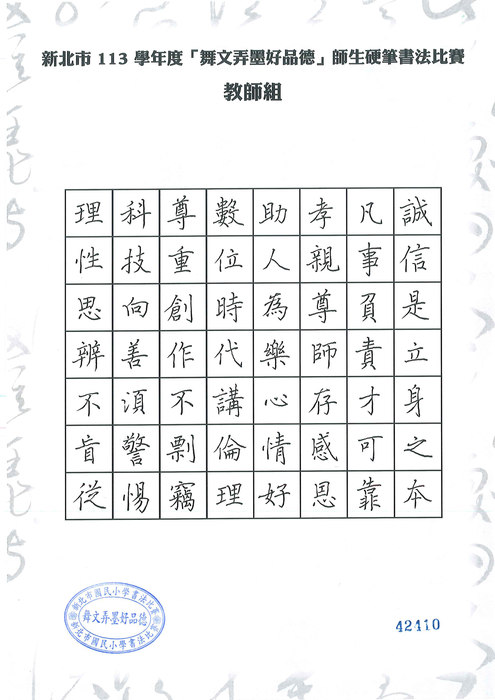 新北市 113 學年度「舞文弄墨好品德」師生硬筆書法比賽
教師組
誠信是立身之本
凡事負責才可靠
孝親尊師存感恩
助人為樂心情好
數位時代講倫理
尊重創作不剽竊
科技向善須警惕
理性思辨不盲從
新北市國民小學書法比賽
舞文弄墨好品德
新北市國民小學書法比賽
42410